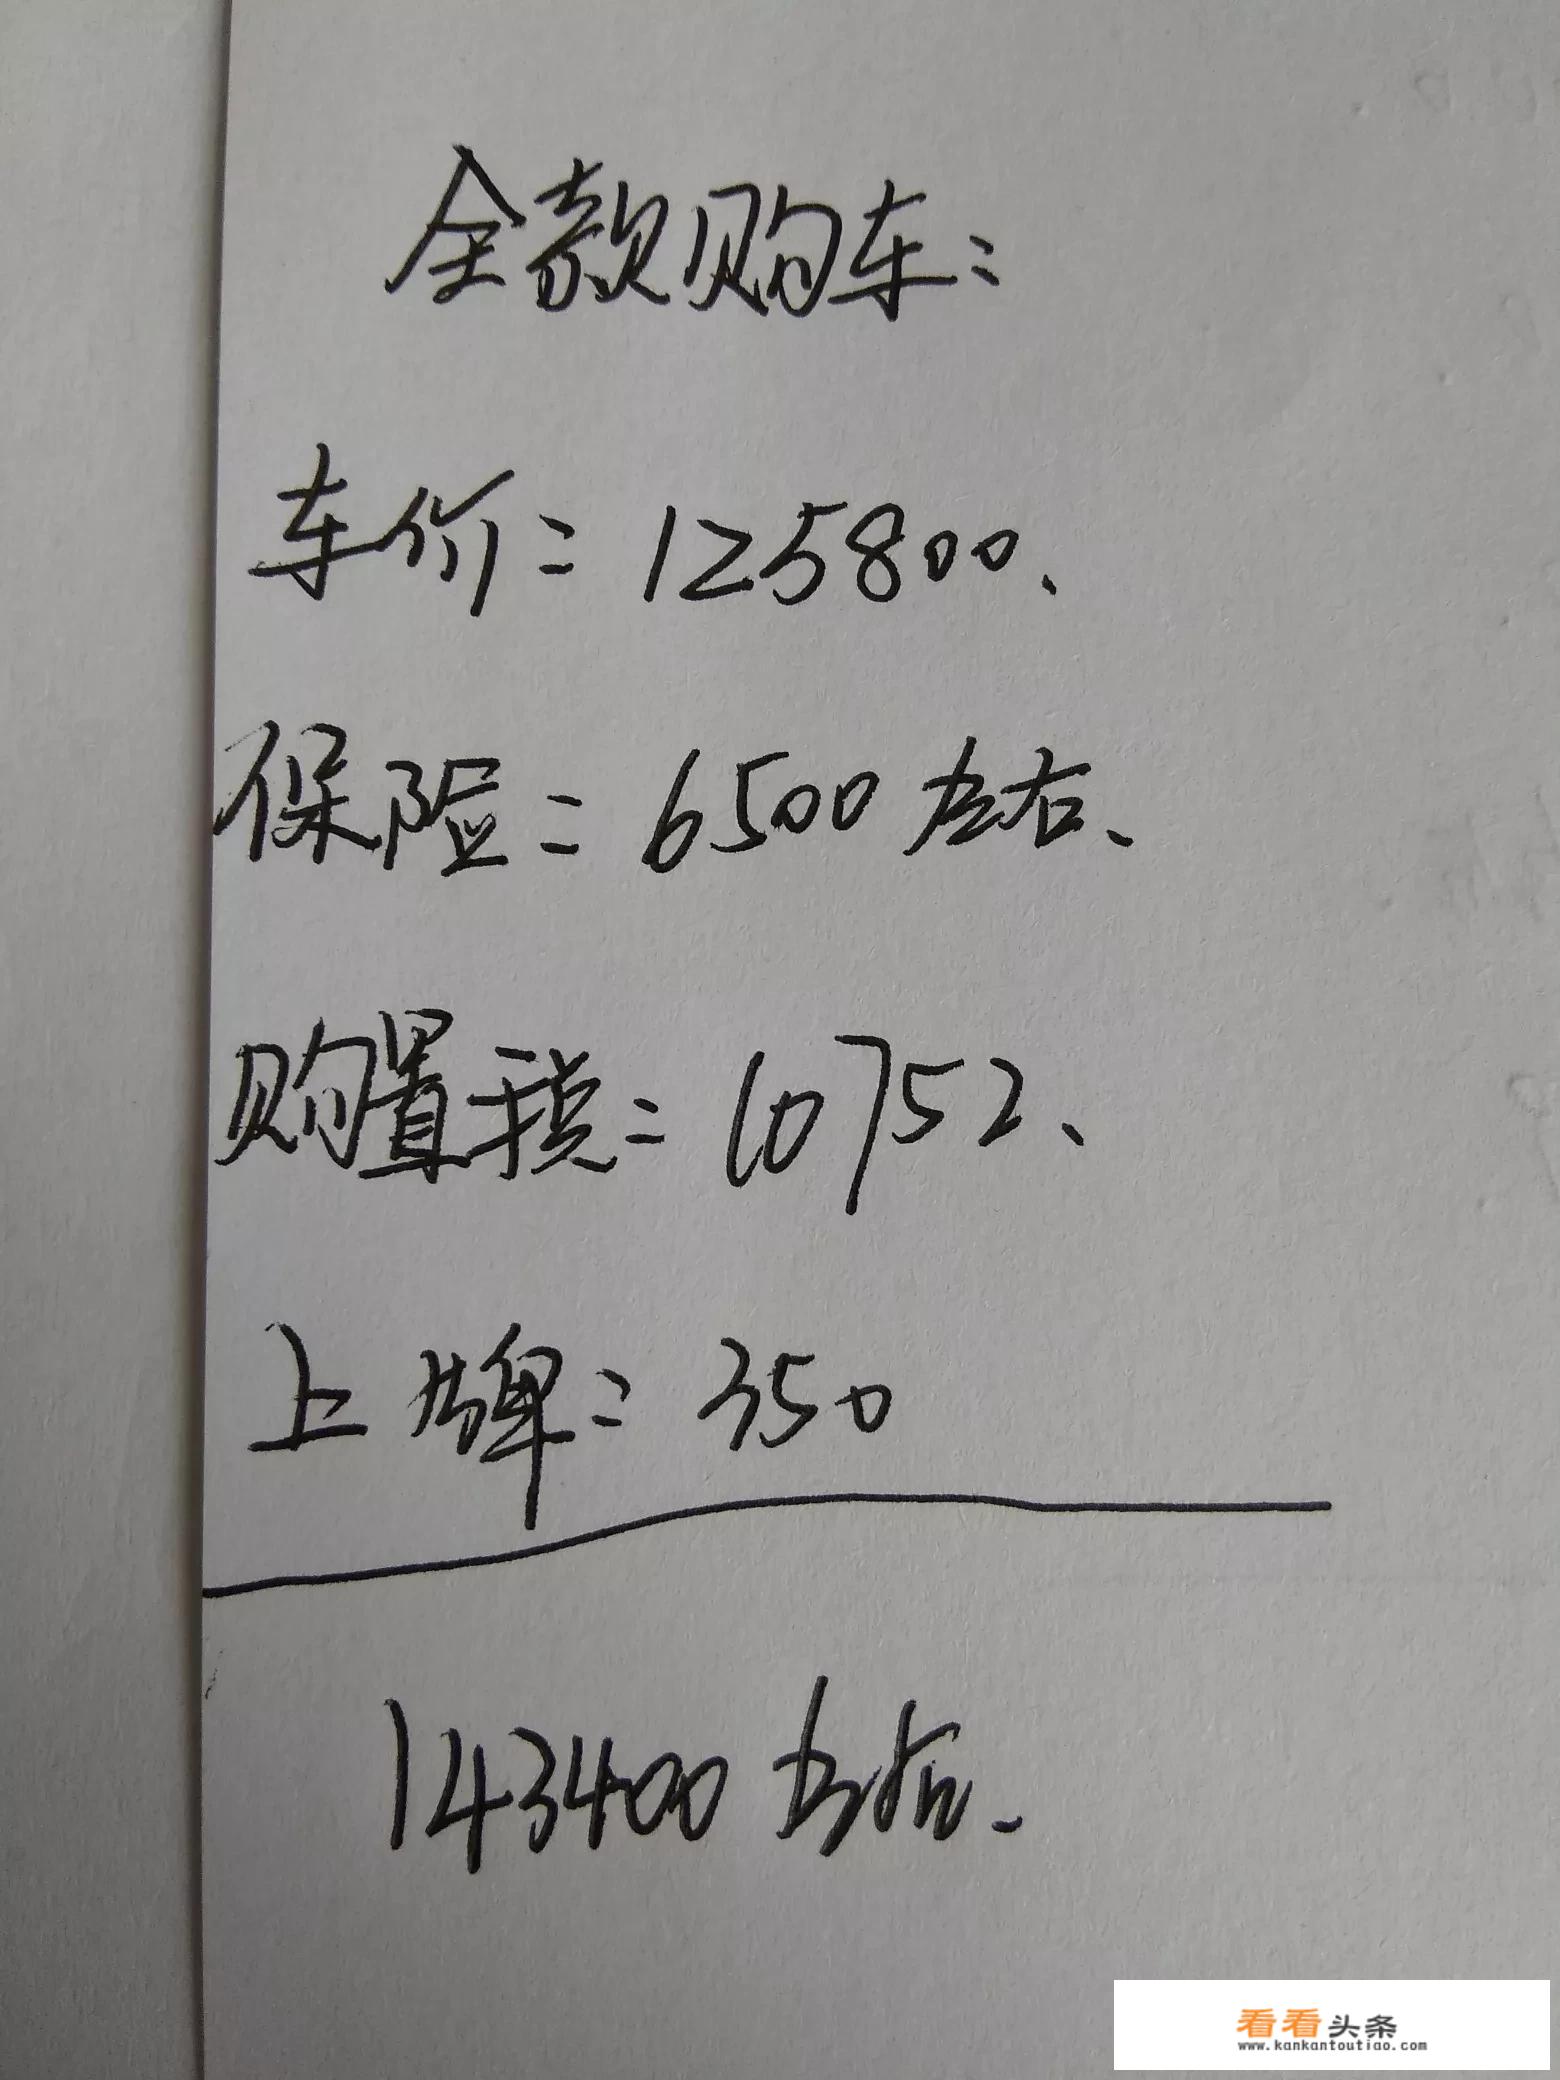 全款购车：
车价：125800、
保险：6500左右、
购置税：10752、
上牌：350
143400左右.
看看头条
www.kankantoutiao.com